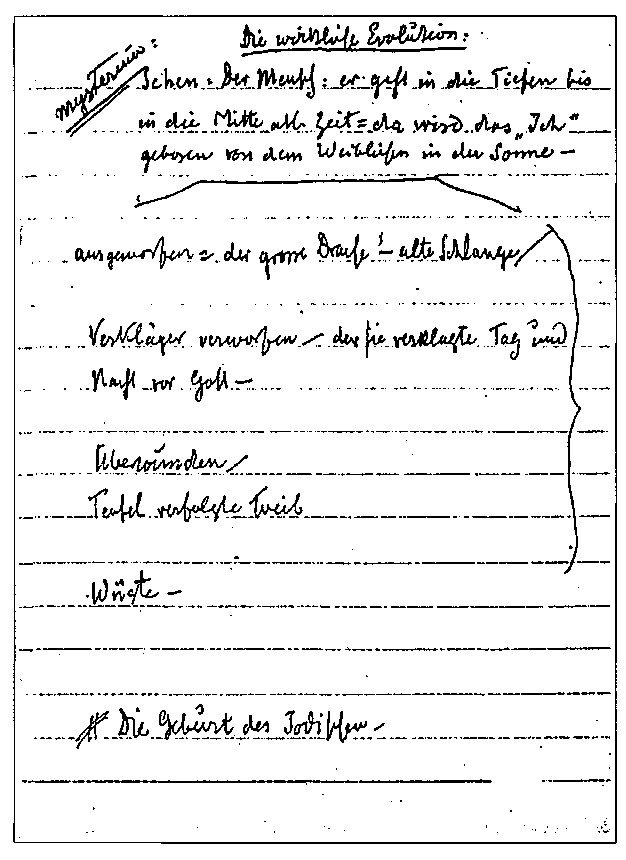 Die wirkliche Evolution:
Mysterium:
Sehen = Der Mensch: er geht in die Tiefen bis
in die Mitte all. Zeit = da wird das „Ich“
geboren von dem Weiblichen in der Sonne –
ausgeworfen = der grosse Drache! – alte Schlange/
Verkläger verworfen – der sie verklagte Tag und
Nacht vor Gott –
Überwunden/
Teufel verfolgte Weib
Wüste –
# Die Geburt des Irdischen –